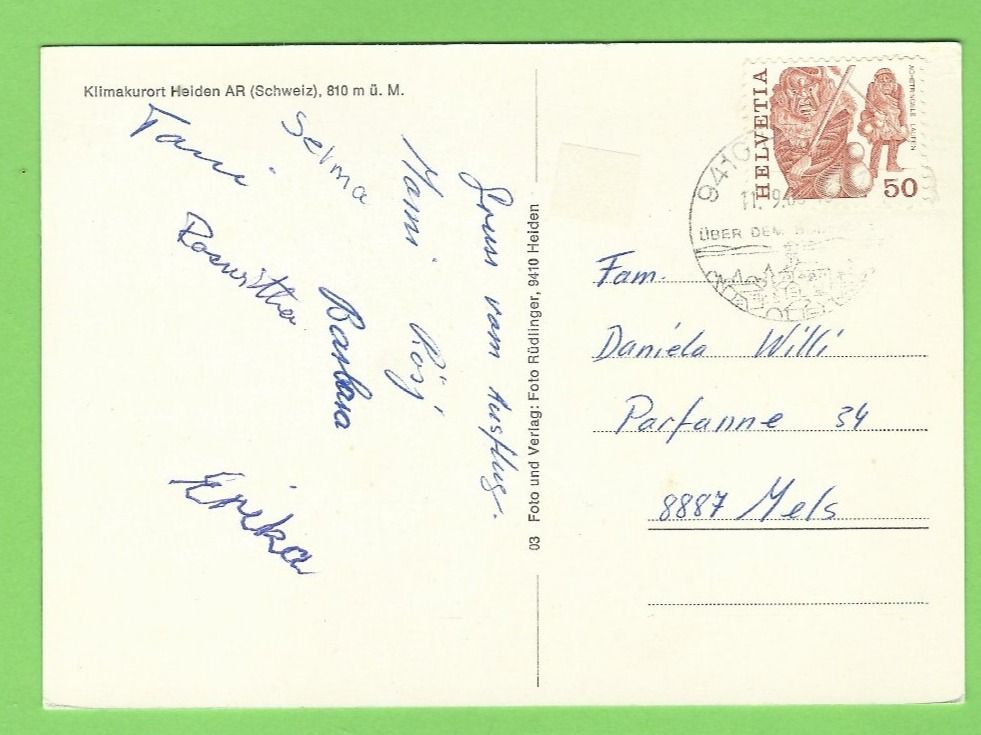 Klimakurort Heiden AR (Schweiz), 810 m ü. M.
Gruss vom Ausflug.
Mami Rösj
Selma
Barbara
Roswitha
Erika
03 Foto und Verlag: Foto Rüdlinger, 9410 Heiden
HELVETIA
LAUFEN
50
9410
ÜBER DEM
Fam.
Daniela Willi
Parfanne 34
8887 Mels